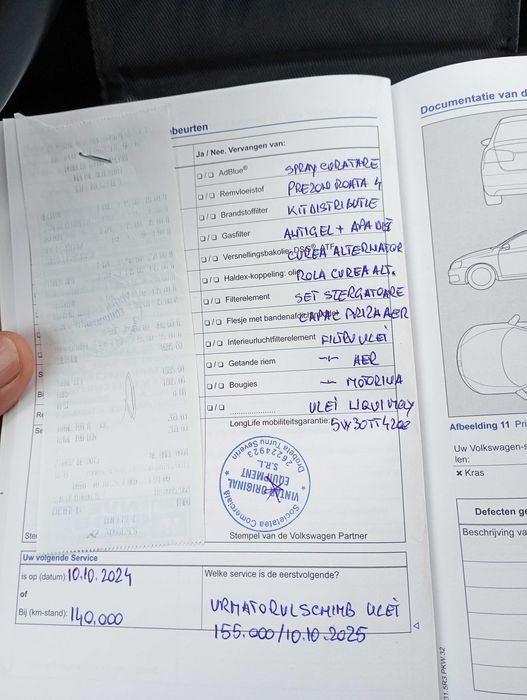 beurten
Documentatie van d
Ja / Nee. Vervangen van:
AdBlue® SPRAY CURATARE
Remvloeistof PREZOND ROATA 4
Brandstoffilter KIT DISTRIBUTIE
Gasfilter ANTIGEL + APA DEI
Versnellingsbakolie: DSG®, ATF CUREA ALTERNATOR
Haldex-koppeling: olie ROLA CUREA ALT.
Filterelement SET STERGATOARE
Flesje met bandenafdichtmiddel CAPAC PRIZA AER
Interieurluchtfilterelement FILTRU ULEI
Getande riem -"- AER
Bougies -"- MOTORINA
ULEI LIQUI MOLY
LongLife mobiliteitsgarantie: 5W30TT4200
Societatea Comerciala
VINTAGE ORIGINAL
EQUIPMENT
S.R.L.
26224923
Drobeta Turnu Severin
Stempel van de Volkswagen Partner
Afbeelding 11 Pri
Uw Volkswagen-s
len:
× Kras
Defecten ge
Beschrijving va
Uw volgende Service
is op (datum): 10.10.2024
Welke service is de eerstvolgende?
of
Bij (km-stand): 140.000
URMATORUL SCHIMB ULEI
155.000/10.10.2025
11.5R3.PKW.32